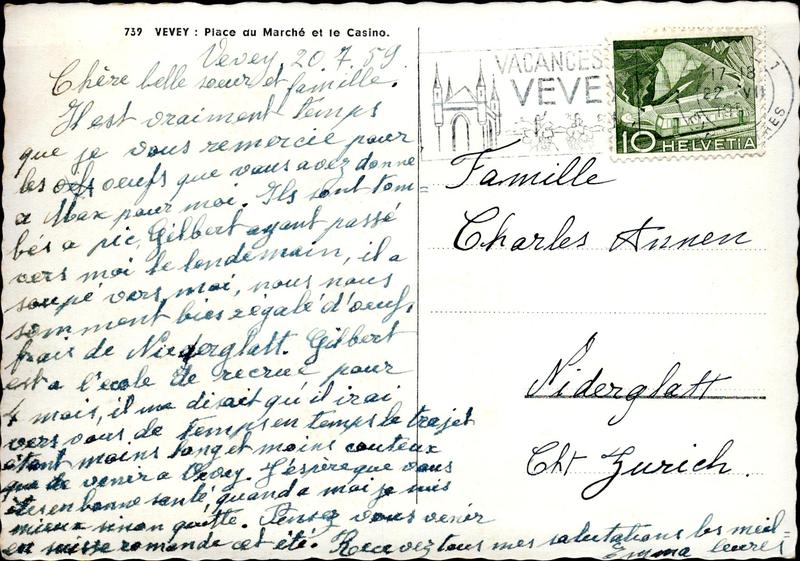 739 VEVEY : Place du Marché et le Casino.
Vevey 20.7.59
Chère belle soeur et famille.
Il est vraiment temps
que je vous remercie pour
les oefs oeufs que vous avez donne
a Max pour moi. Ils sont tom=
bés a pic, Gilbert ayant passé
vers moi le lendemain, il a
soupé vers moi, nous nous
somment bien régalé d'oeufs
frais de Niederglatt. Gilbert
est a l'école de recrue pour
4 mois, il me disait qu'il irai
vers vous de temps en temps le trajet
étant moins long et moins couteux
que de venir a Vevey. J'espère que vous
êtes en bonne santé, quand a moi je suis
mieux sinon quitte. Pensez vous venir
en suisse romande cet été. Recevez tous mes salutations les meil=
Emma leures
VACANCES
VEVE
17-18
22 VII
1
10 HELVETIA
Famille
Charles Annen
Niderglatt
Ct Zurich.